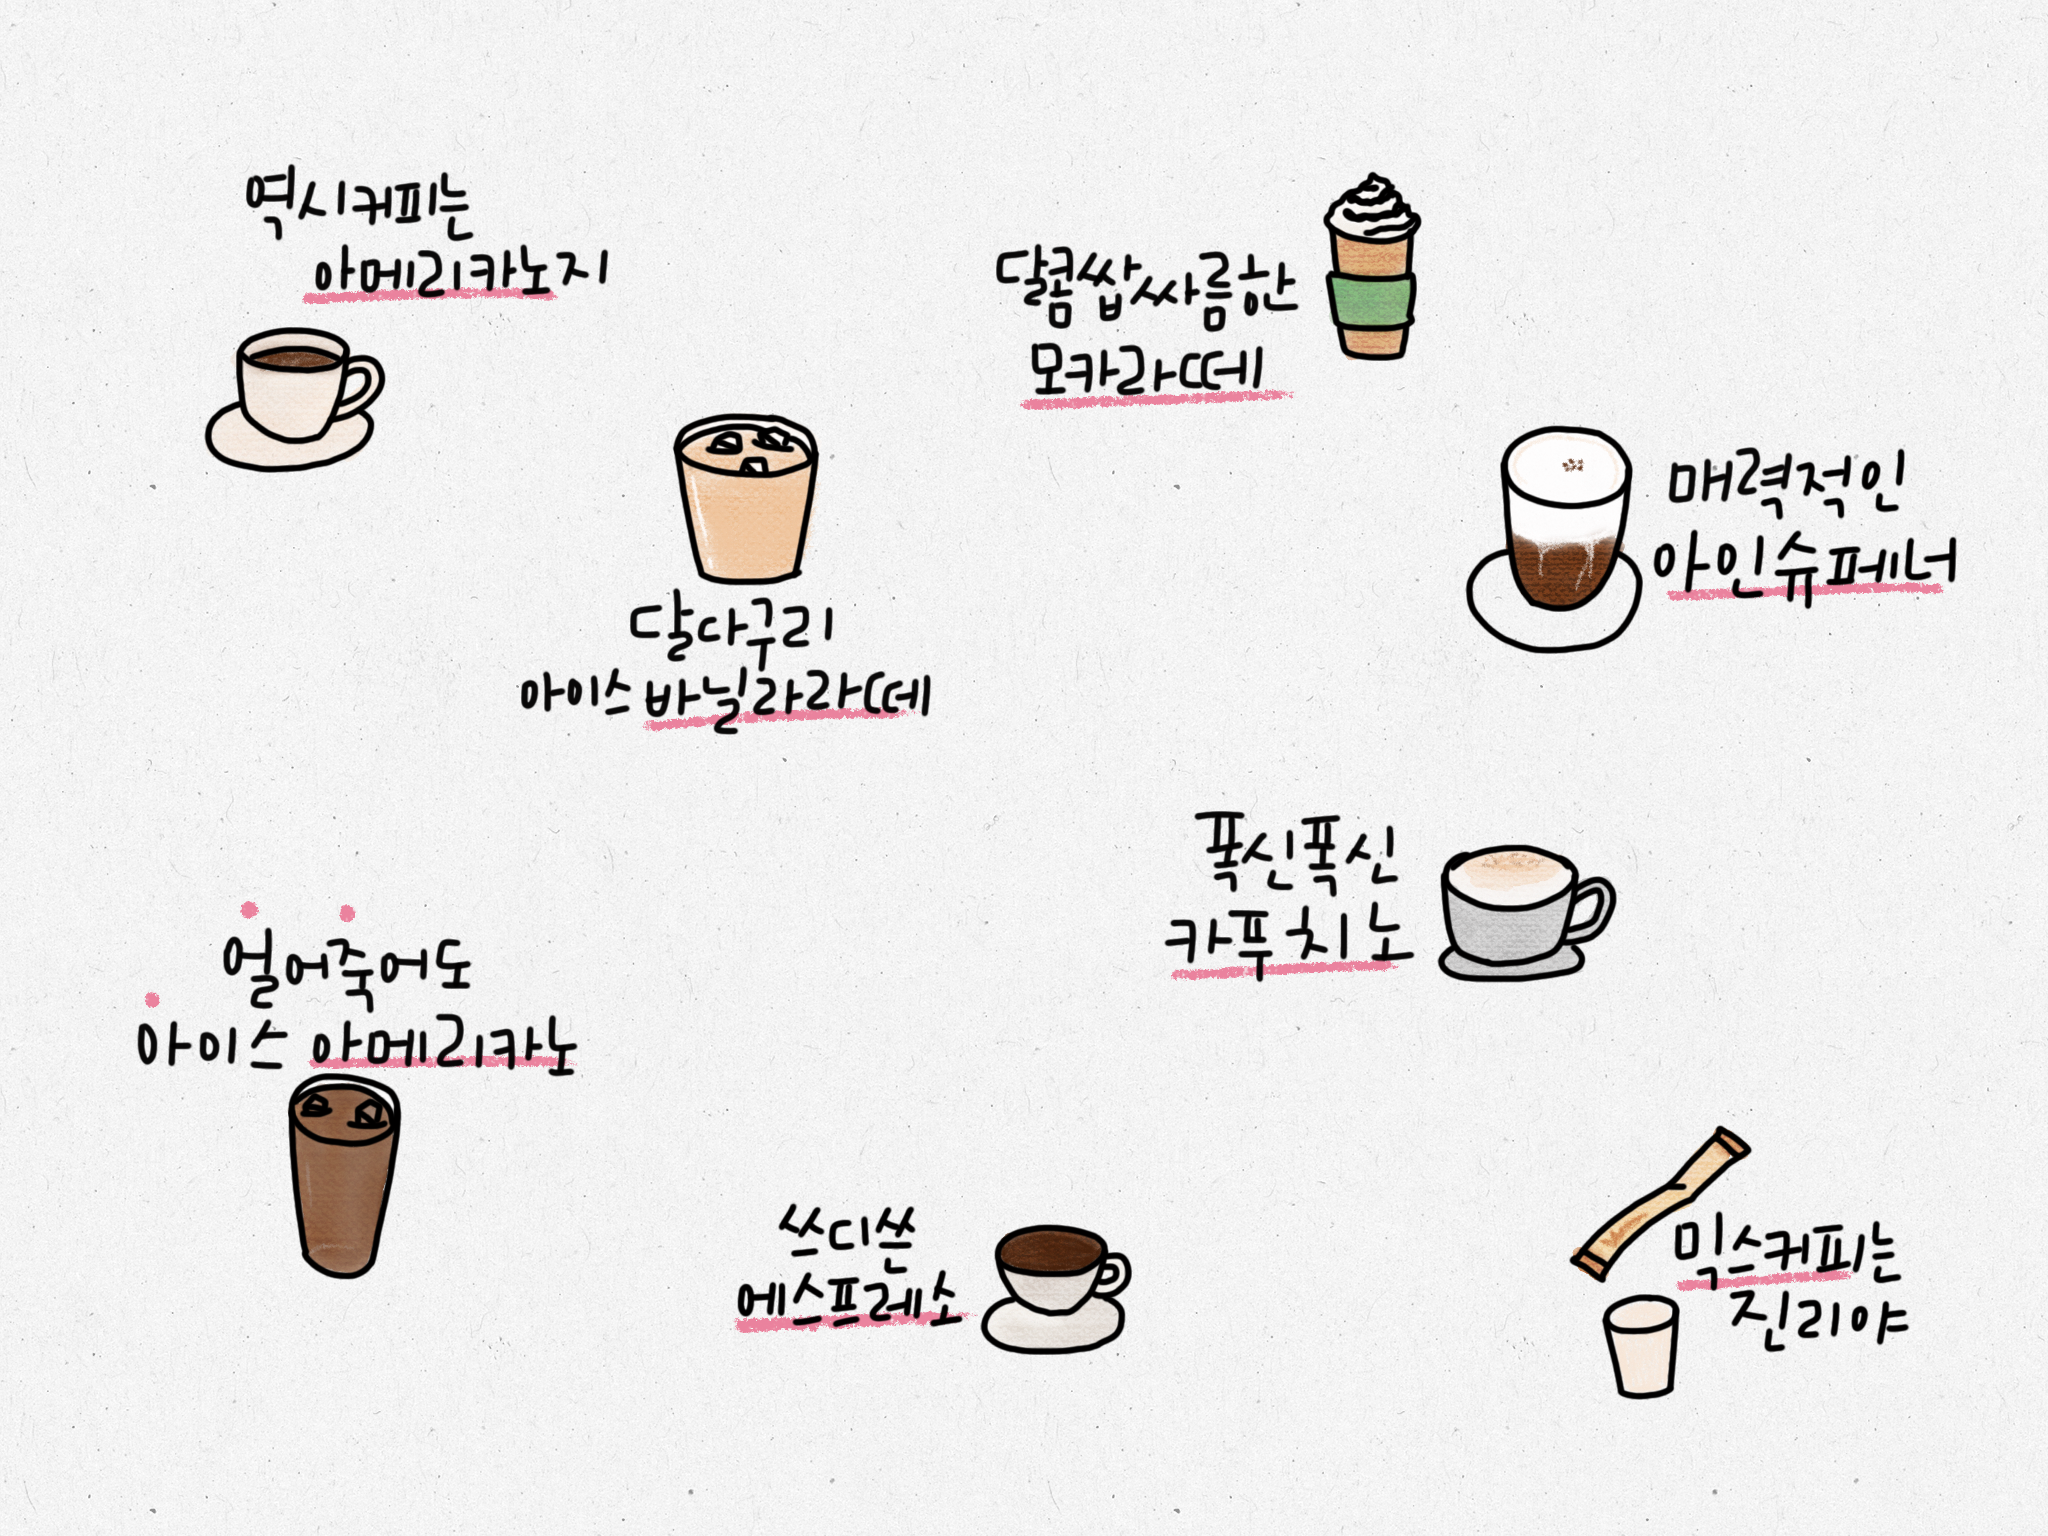 역시커피는
아메리카노지
달콤쌉싸름한
모카라떼
매력적인
아인슈페너
달다구리
아이스 바닐라라떼
폭신폭신
카푸치노
얼어죽어도
아이스 아메리카노
쓰디쓴
에스프레소
믹스커피는
진리야